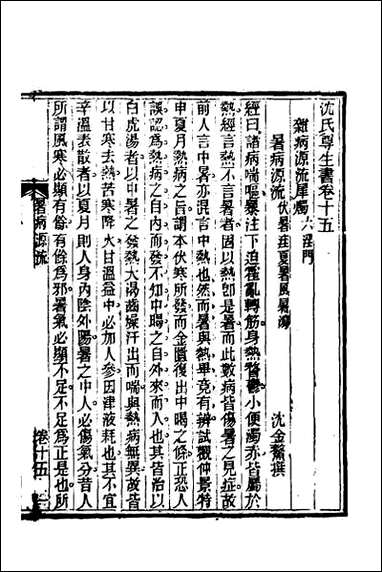 沈氏尊生書卷十五
雜病源流犀燭 六淫門
沈金鰲撰
暑病源流 伏暑 疰夏 暑風 暑瘍
經曰諸病喘嘔暴注下迫霍亂轉筋身熱瞀鬱小便濁赤皆屬於
熱經言熱不言暑者固以熱卽是暑而此數病皆傷暑之見症故
前人言中暑亦混言中熱也然而暑與熱畢竟有辨試觀仲景特
申夏月熱病之旨謂本伏寒所發而金匱復出中暍之條正恐人
誤認為熱病之自內而發不知中暍之自外來而入也其皆治以
白虎湯者以中暑之發熱大渴齒燥汗出而喘與熱病無異故皆
以甘寒去熱苦寒降火甘溫益中必加人參因津液耗也其不宜
辛溫表散者以夏月則人身內陰外陽暑之中人必傷氣分昔人
所謂風寒必顯有餘有餘為邪暑氣必顯不足不足為正是也所
暑病源流
卷十五
一